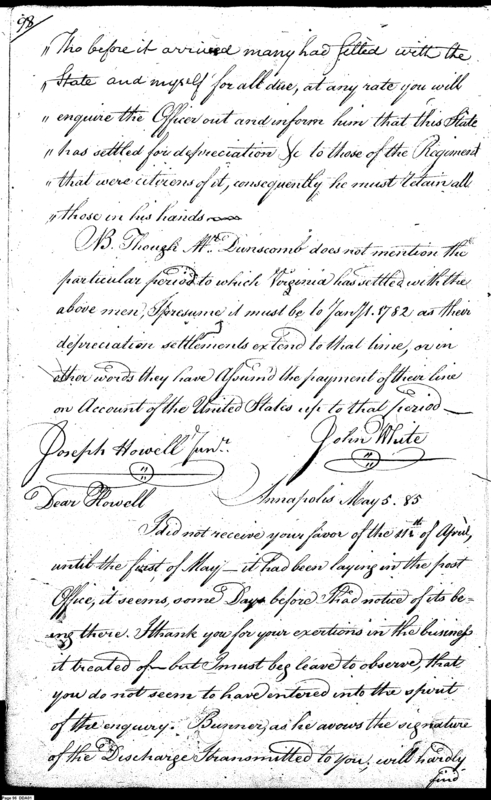 98
" Tho before it arrived many had settled with the
" State and myself for all due, at any rate you will
" enquire the Officer out and inform him that this State
" has settled for depreciation &c to those of the Regiment
" that were citizens of it, consequently he must retain all
" those in his hands
NB. Though Mr. Dunscomb does not mention the
particular period to which Virginia has settled with the
above men, I presume it must be to Jany 1. 1782 as their
depreciation settlements extend to that time, or in
other words they have Assum'd the payment of their line
on Account of the United States up to that Period —
John White
Joseph Howell Junr.
Annapolis May 5. 85
Dear Howell
I did not receive your favor of the 11th of April,
until the first of May — it had been laying in the post
Office, it seems, some Days before I had notice of its be-
ing there. I thank you for your exertions in the business
it treated of — but I must beg leave to observe, that
you do not seem to have intered into the spirit
of the enquiry. Bunner, as he avows the signature
of the Discharge I transmitted to you, will hardly
find
Page 98